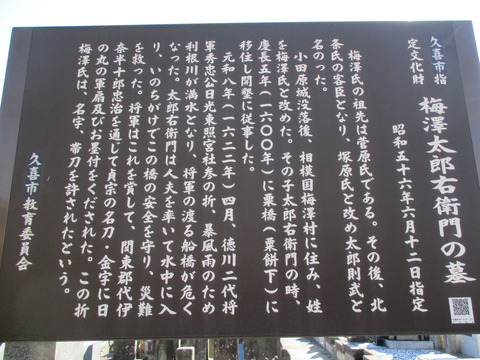 久喜市指定文化財
梅澤太郎右衛門の墓
昭和五十六年六月十二日指定
梅澤氏の祖先は菅原氏である。その後、北
条氏の客臣となり、塚原氏と改め太郎則武と
名のった。
小田原城没落後、相模国梅澤村に住み、姓
を梅澤氏と改めた。その子太郎右衛門の時、
慶長五年(一六〇〇年)に栗橋(粟餅下)に
移住し開墾に従事した。
元和八年(一六二二年)四月、徳川二代将
軍秀忠公日光東照宮社参の折、暴風雨のため
利根川が満水となり、将軍の渡る船橋が危く
なった。太郎右衛門は人夫を率いて水中に入
り、いのちがけでこの橋の安全を守り、災難
を救った。将軍はこれを賞して、関東郡代伊
奈半十郎忠治を通じて貞宗の名刀・金字に日
の丸の軍扇及びお墨付をくだされた。この折
梅澤氏は、名字、帯刀を許されたという。
久喜市教育委員会